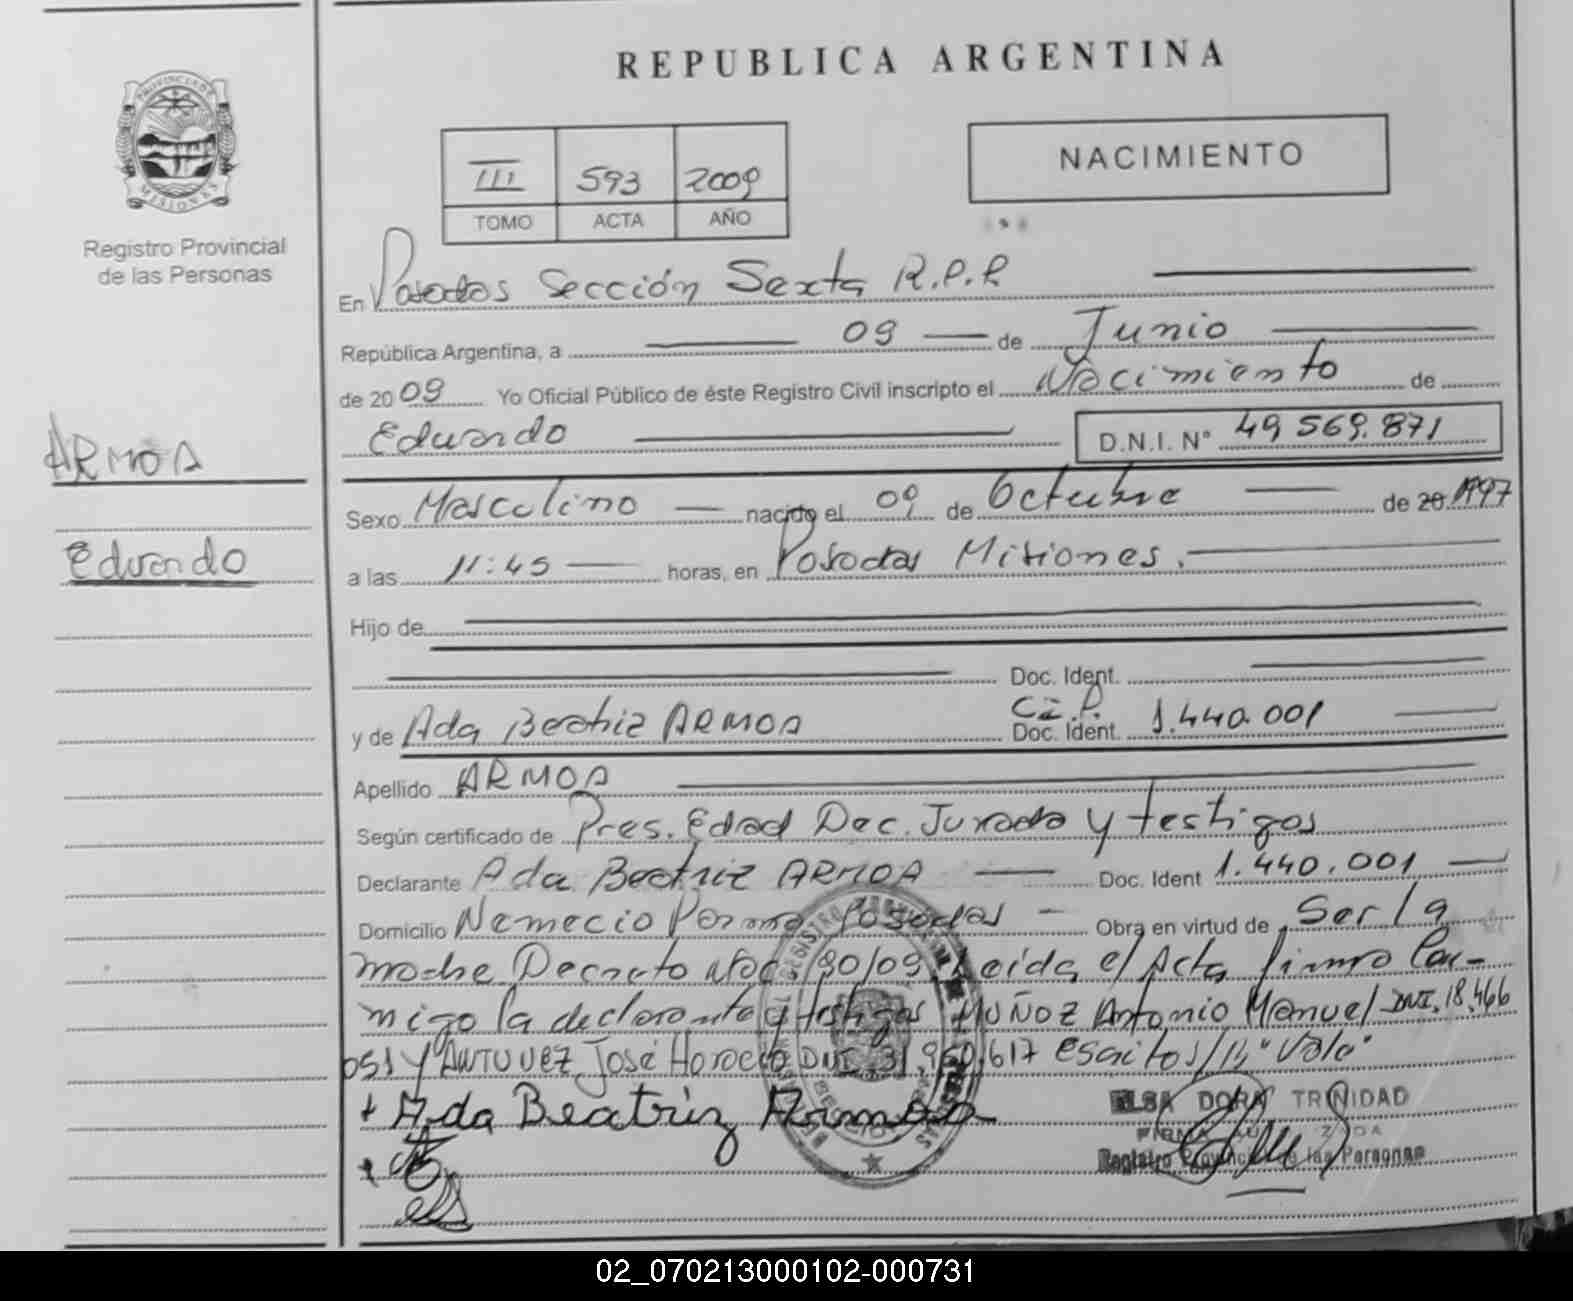 REPUBLICA ARGENTINA
PROVINCIA DE
MISIONES
Registro Provincial
de las Personas
III 593 2009
TOMO ACTA AÑO
NACIMIENTO
En Posadas Sección Sexta R.P.P.
República Argentina, a 09 de Junio
de 2009 Yo Oficial Público de éste Registro Civil inscripto el Nacimiento de
ARMOA
Eduardo D.N.I. N° 49 569.871
Sexo Masculino nacido el 09 de Octubre de 20 1997
Eduardo
a las 11:45 horas, en Posadas Misiones.
Hijo de
Doc. Ident.
C.I.P.
y de Ada Beatriz ARMOA Doc. Ident. 1.440.001
Apellido ARMOA
Según certificado de Pres. Edad Dec. Jurada y testigos
Declarante Ada Beatriz ARMOA Doc. Ident 1.440.001
Domicilio Nemecio Posadas Obra en virtud de Ser la
madre Decreto 90/09 Leída el Acta firman Con-
migo la declarante y testigos MUÑOZ Antonio Manuel DNI. 18.466
051 y ANTUNEZ José Horacio DNI 31.960.617 Escritos "Vale"
+ Ada Beatriz Armoa
ELSA DORA TRINIDAD
FIRMA AUTORIZADA
Registro Provincial de las Personas
02_070213000102-000731